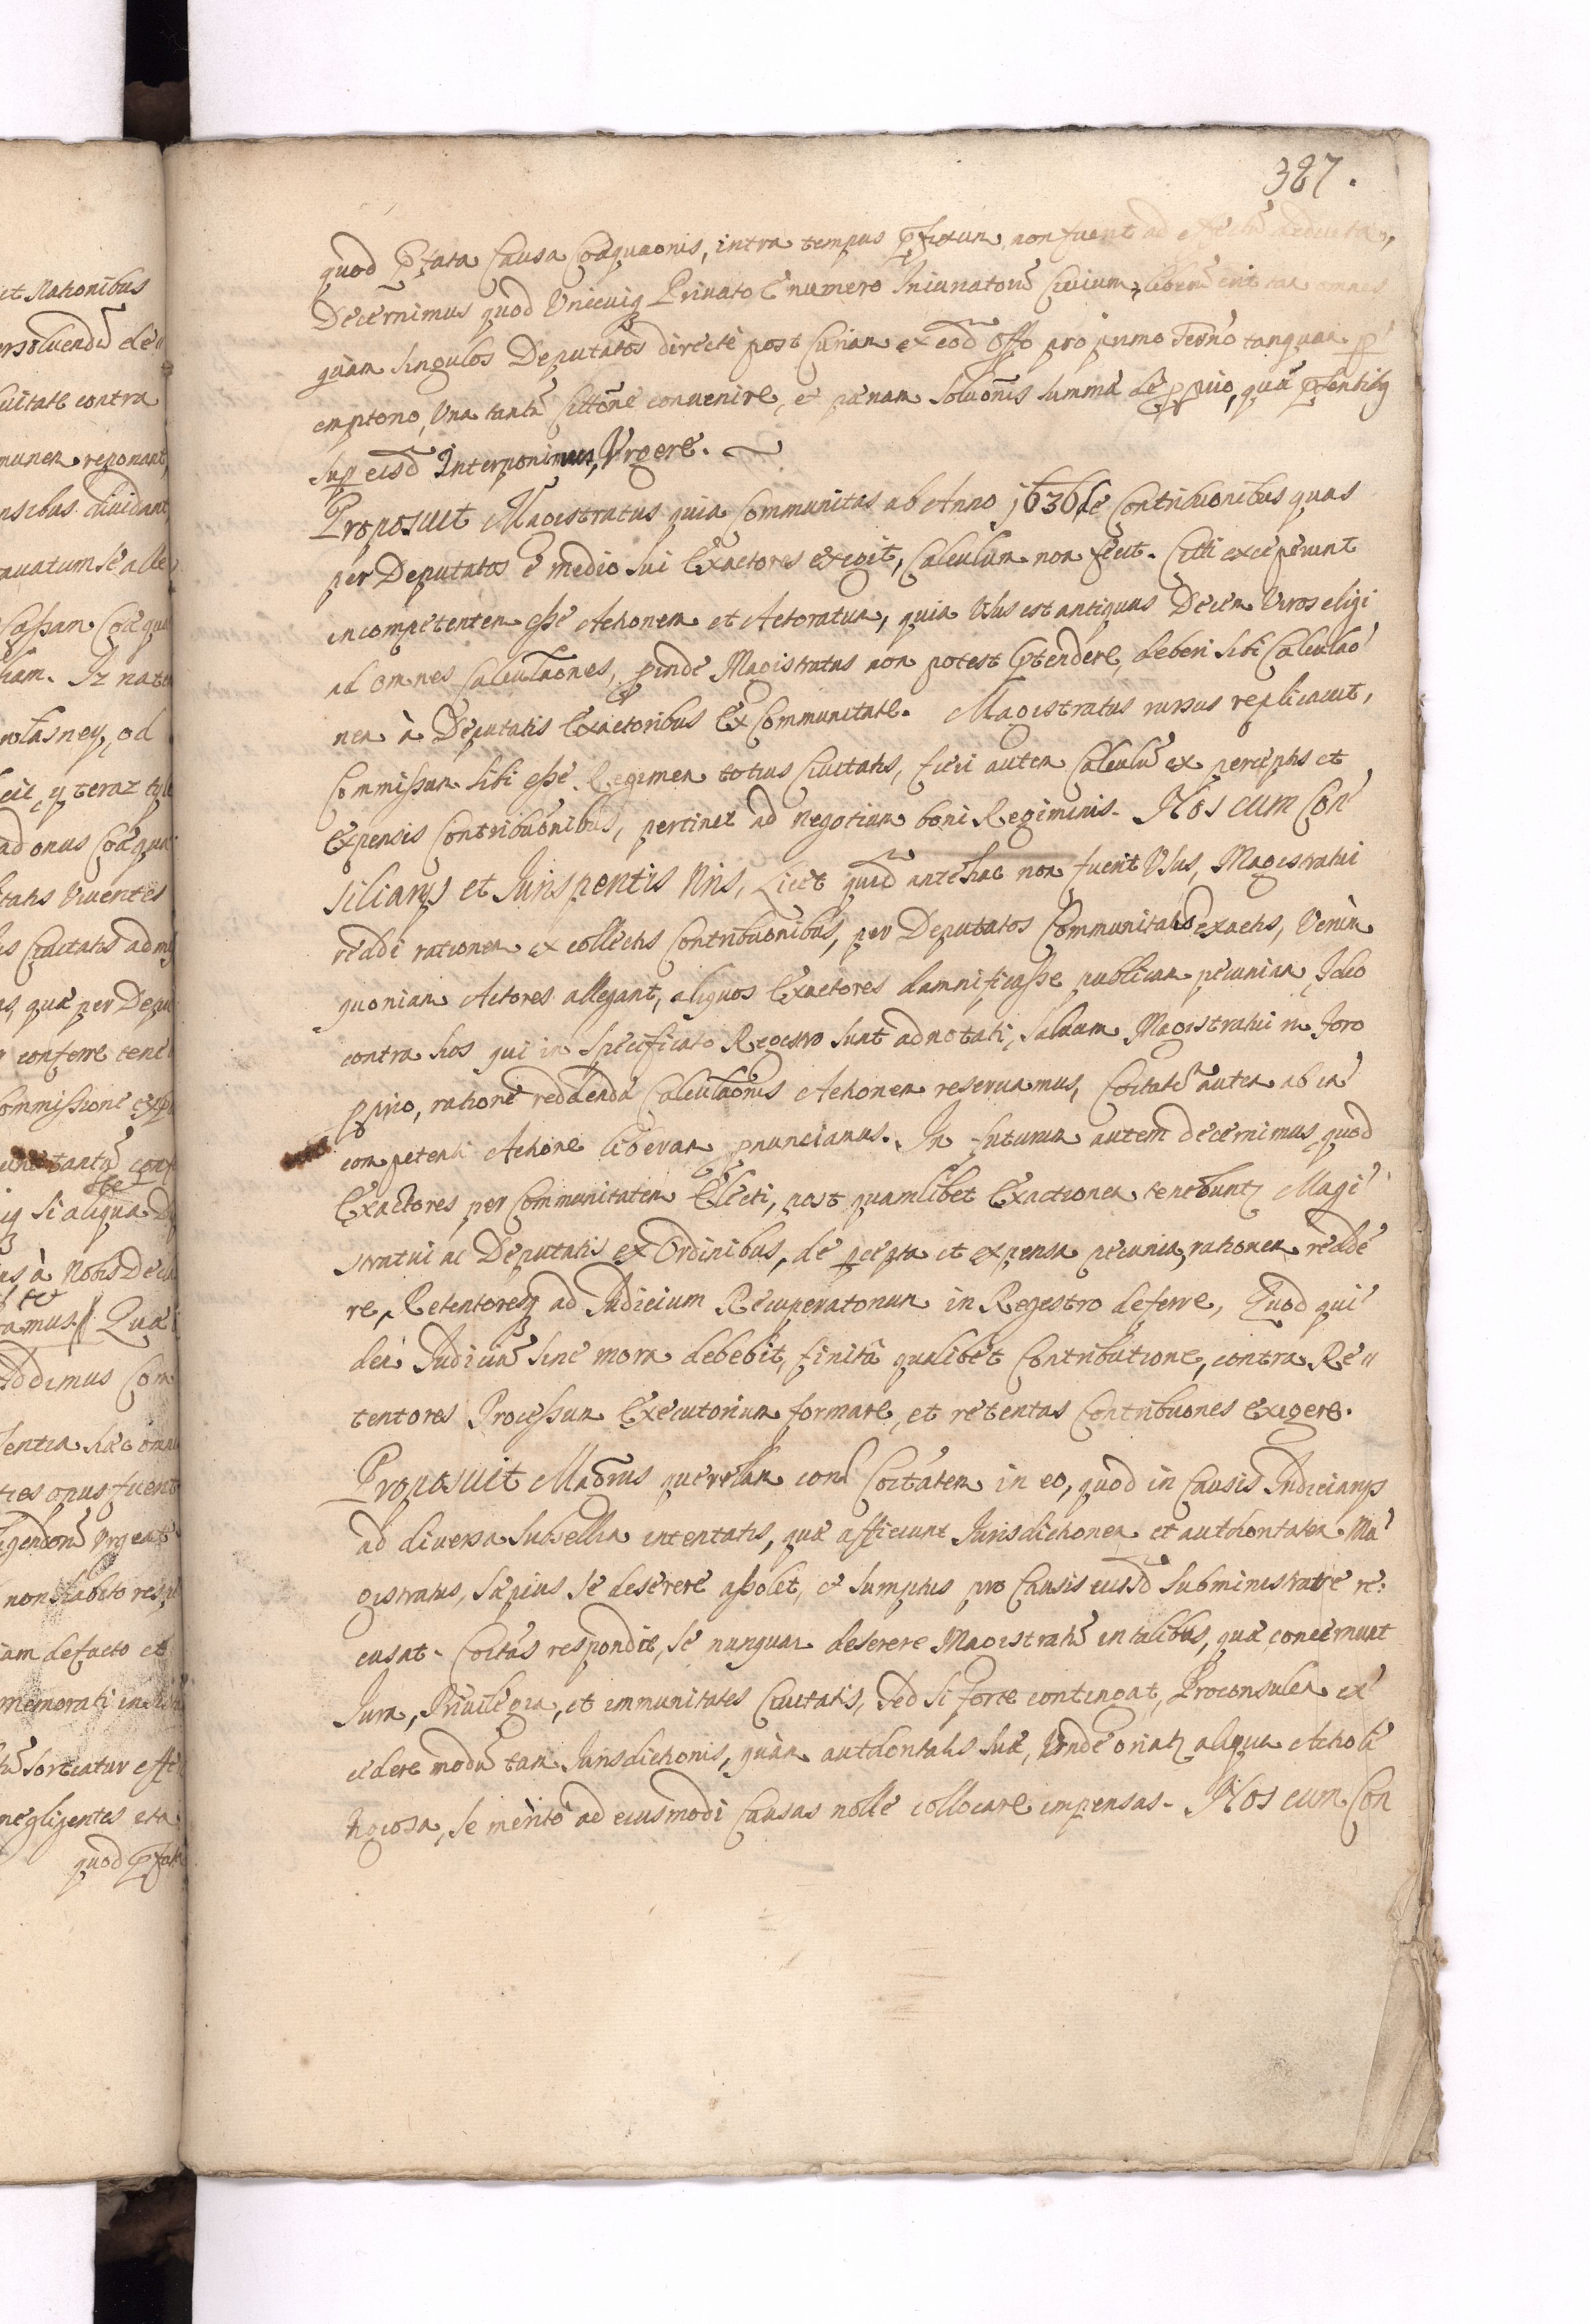 387.
quod pfata Causa Coaquaonis, intra tempus pfixum, non fuerit ad effectũ deducta,
Decernimus quod Unicuiq Privato è numero Iniuriatorũ Civium, liberũ erit tam omnes
quàm singulos Deputatos directè post Curiam ex eod Offo pro primo Terno tanquam p
emptorio, Una tantũ Cittõne convenire, et pænam Soluõnis Summæ de pprio, quã pñtibq
sup eisd Interponimus, Urgere.
Proposuit Magistratus quia Communitas ab Anno 1636 de Contribuonibus quas
per Deputatos è medio sui Exactores exegit, Calculum non fecit. Citti exceperunt
incompetentem esse Actionem et Actoratum, quia Usus est antiquus Decem Viros eligi
ad omnes Calculaones, pinde Magistratus non potest ptendere, deberi sibi Calculao
nem à Deputatis Exactoribus Ex Communitate. Magistratus rursus replicavit,
Commissum sibi esse Regimen totius Civitatis, fieri autem Calculũ ex perceptis et
Expensis Contribuonibus, pertinet ad negotium boni Regiminis. Nos cum Con
siliarys et Jurisperitis Nris, Licet quid antehac non fuerit Usus, Magistratui
reddi rationem ex collectis Contribuonibus, per Deputatos Communitatis exactis, Verùm
quoniam Actores allegant, aliquos Exactores damnificasse publicam pecuniam, Ideo
contra hos qui in Specificato Regestro sunt adnotati, salvam Magistratui in Foro
pprio, ratione reddendæ Calculaonis Actionem reservamus, Coitatẽ autem ab in
competenti Actione liberam pnunciamus. In futurum autem decernimus quod
Exactores per Communitatem Electi, post quamlibet Exactionem tenebunt Magi
stratui ac Deputatis ex Ordinibus, de pcepta et expensa pecunia, rationem redde
re, Retentoresq ad Judicium Recuperatorium in Regestro deferre, Quod qui
dem Judiciũ sine mora debebit, finitâ qualibet Contributione, contra Re"
tentores Processum Executorium formare, et retentas Contribuones exigere.
Proposuit Madrus querelam con Coitatem in eo, quod in Causis Judiciarys
ad diversa Subsellia intentatis, quæ afficiunt Jurisdictionem et authoritatem Ma
gistratus, Sæpius se deserere assolet, et Sumptus pro Causis eiusd subministrare re:
cusat. Coitas respondit, se nunquam deserere Magistratũ in talibus, quæ concernunt
Jura, Privilegia, et immunitates Civitatis, Sed si forte contingat, Proconsulem ex
cedere modũ tam Jurisdictionis, quàm authoritatis suæ, Unde oriat aliqua Actio li
tigiosa, se meritò ad eiusmodi Causas nolle collocare impensas. Nos cum Con